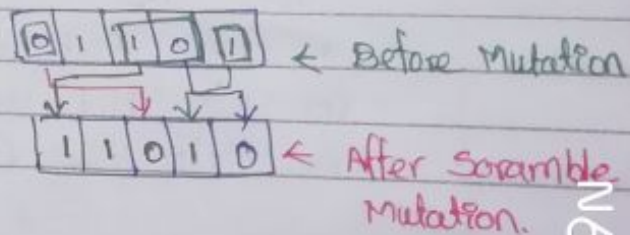 0 1 1 0 1 ← Before Mutation
1 1 0 1 0 ← After Scramble
Mutation.